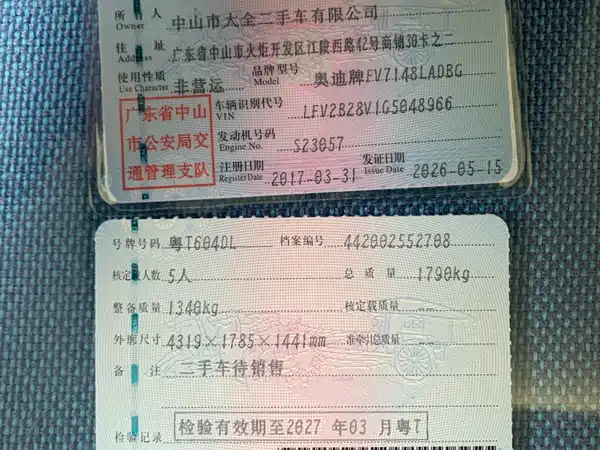 所有人 中山市太全二手车有限公司
Owner
住址 广东省中山市火炬开发区江陵西路42号商铺30卡之二
使用性质 非营运 品牌型号 奥迪牌FV7148LADBG
Use Character Model
广东省中山
市公安局交
通管理支队
车辆识别代号 LFV2B28V1G5048966
VIN
发动机号码 S23057
Engine No.
注册日期 2017-03-31 发证日期 2026-05-15
Register Date Issue Date
号牌号码 粤T604DL 档案编号 442002552708
核定载人数 5人 总质量 1790kg
整备质量 1340kg 核定载质量 --
外廓尺寸 4319×1785×1441mm 准牵引总质量 --
备注 二手车待销售
检验记录 检验有效期至2027年03月粤T